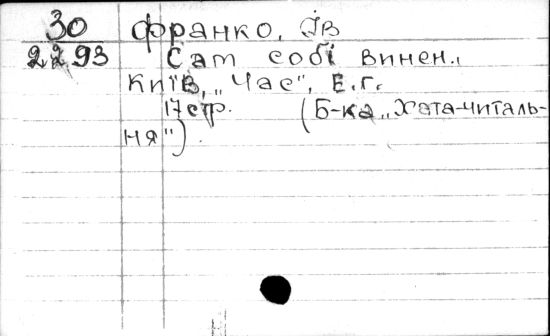 30
2293
Франко, Ів
Сам собі винен.,
Київ, „Час", Е.г.
17 стр. (Б-ка „Хата-читаль-
ня").